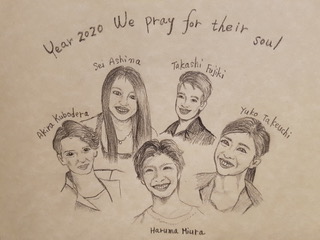 Year 2020 We pray for their soul
Sei Ashina
Takashi Fujiki
Akira Kubodera
Yuko Takeuchi
Haruma Miura